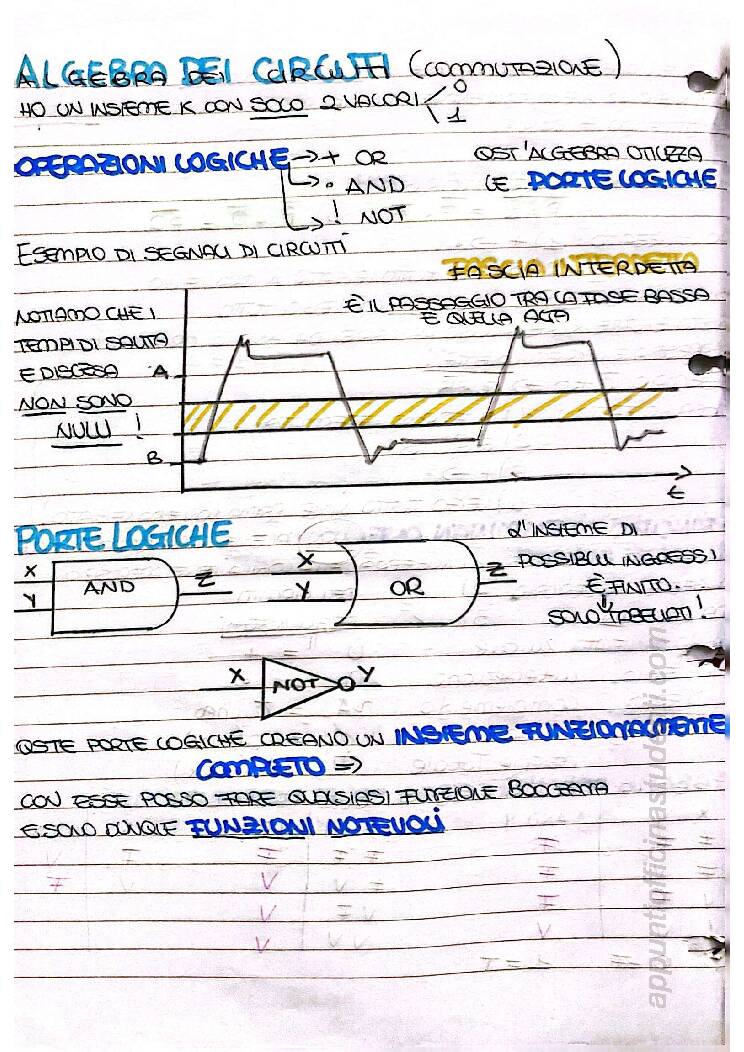 ALGEBRA DEI CIRCUITI (COMMUTAZIONE)
HO UN INSIEME K CON SOLO 2 VALORI 0
1
OPERAZIONI LOGICHE → + OR
→ · AND
→ ! NOT
QST'ALGEBRA UTILIZZA
LE PORTE LOGICHE
ESEMPIO DI SEGNALI DI CIRCUITI
FASCIA INTERDETTA
È IL PASSAGGIO TRA LA FASE BASSA
E QUELLA ALTA
NOTIAMO CHE I
TEMPI DI SALITA
E DISCESA
NON SONO
NULLI !
A
B
t
PORTE LOGICHE
X
Y
AND
Z
X
Y
OR
Z
L'INSIEME DI
POSSIBILI INGRESSI
È FINITO.
SOLO TABELLATI!
X
NOT
Y
QSTE PORTE LOGICHE CREANO UN INSIEME FUNZIONALMENTE
COMPLETO =>
CON ESSE POSSO FARE QUALSIASI FUNZIONE BOOLEANA
E SONO DUNQUE FUNZIONI NOTEVOLI
appuntiofficinastudenti.com